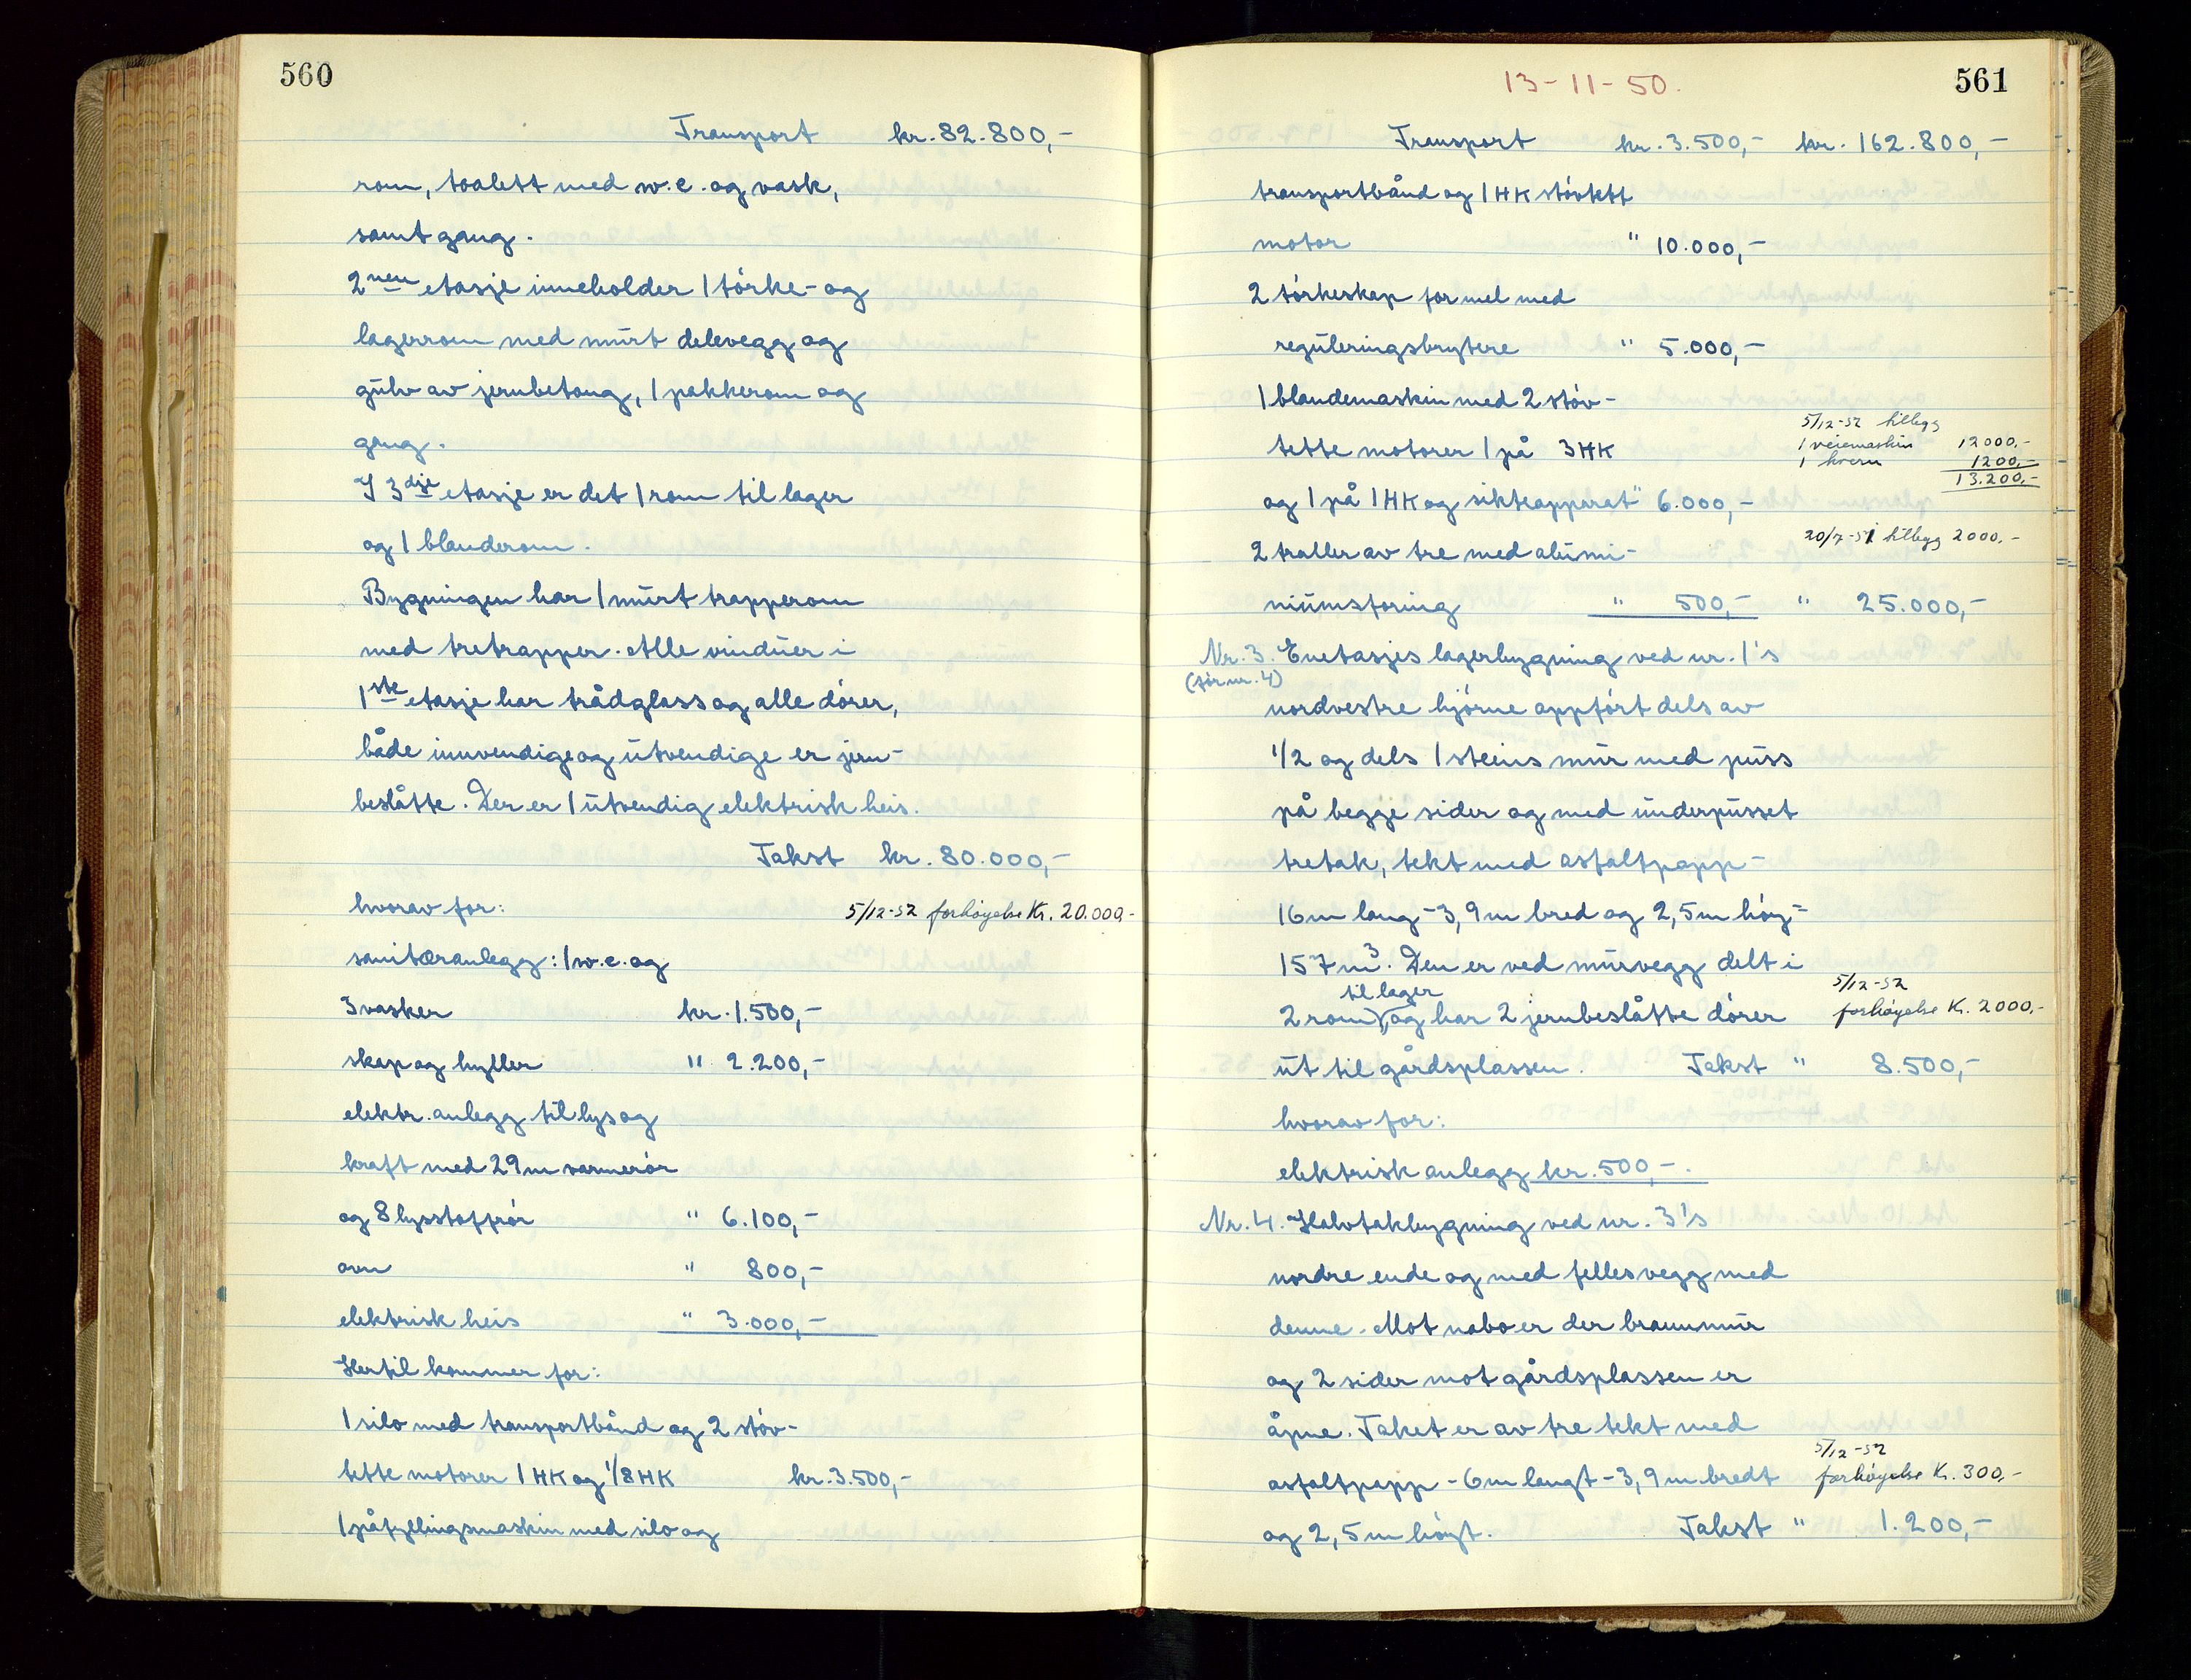 560
Transport kr. 82.800,-
rom, toalett med w.c. og vask,
samt gang.
2nen etasje inneholder 1 tørke- og
lagerrom med murt delevegg og
gulv av jernbetong, 1 pakkerom og
gang.
I 3dje etasje er det 1 rom til lager
og 1 blanderom.
Bygningen har 1 murt trapperom
med tretrapper. Alle vinduer i
1ste etasje har trådglass og alle dører,
både innvendige og utvendige er jern-
beslåtte. Der er 1 utvendig elektrisk heis.
Takst kr. 80.000,-
hvorav for:
5/12-52 forhøyelse Kr. 20.000,-
sanitæranlegg: 1 w.c. og
3 vasker kr. 1.500,-
skap og hyller " 2.200,-
elektr. anlegg til lys og
kraft med 29m varmerør
og 8 lysstoffrør " 6.100,-
ovn " 800,-
elektrisk heis " 3.000,-
Hertil kommer for:
1 silo med transportbånd og 2 støv-
tette motorer 1 HK og 1/8 HK kr. 3.500,-
1 påfyllingsmaskin med silo og
13-11-50.
561
Transport kr. 3.500,- kr. 162.800,-
transportbånd og 1 HK støvtett
motor " 10.000,-
2 tørkeskap for mel med
reguleringsbrytere " 5.000,-
1 blandemaskin med 2 støv-
5/12-52 tillegg
tette motorer 1 på 3 HK
1 veiemaskin 12000,-
1 kvern 1200,-
13.200,-
og 1 på 1 HK og siktapparat " 6.000,-
20/7-51 tillegg 2000,-
2 traller av tre med alumi-
niumsforing " 500,- " 25.000,-
Nr. 3. Enetasjes lagerbygning ved nr. 1's
(før nr. 4)
nordvestre hjørne oppført dels av
1/2 og dels 1 steins mur med puss
på begge sider og med underpusset
tretak, tekt med asfaltpapp -
16m lang - 3,9m bred og 2,5m høy =
157 m3. Den er ved murvegg delt i
til lager
5/12-52
2 rom, og har 2 jernbeslåtte dører
forhøyelse Kr. 2000,-
ut til gårdsplassen. Takst " 8.500,-
hvorav for:
elektrisk anlegg kr. 500,-.
Nr. 4. Halvtakbygning ved nr. 3's
nordre ende og med felles vegg med
denne. Mot nabo er der brannmur
og 2 sider mot gårdsplassen er
åpne. Taket er av tre tekt med
5/12-52
asfaltpapp - 6m langt - 3,9m bredt
forhøyelse Kr. 300,-
og 2,5m høyt. Takst " 1.200,-